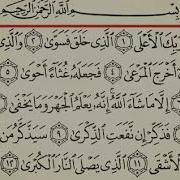 بِسْمِ ٱللَّهِ ٱلرَّحْمَٰنِ ٱلرَّحِيمِ
رَبِّكَ ٱلْأَعْلَى ١ ٱلَّذِى خَلَقَ فَسَوَّىٰ ٢ وَٱلَّذِى
أَخْرَجَ ٱلْمَرْعَىٰ ٤ فَجَعَلَهُۥ غُثَآءً أَحْوَىٰ ٥
إِلَّا مَا شَآءَ ٱللَّهُ إِنَّهُۥ يَعْلَمُ ٱلْجَهْرَ وَمَا يَخْفَىٰ
فَذَكِّرْ إِن نَّفَعَتِ ٱلذِّكْرَىٰ ٩ سَيَذَّكَّرُ مَن
ٱلْأَشْقَى ١١ ٱلَّذِى يَصْلَى ٱلنَّارَ ٱلْكُبْرَىٰ ١٢